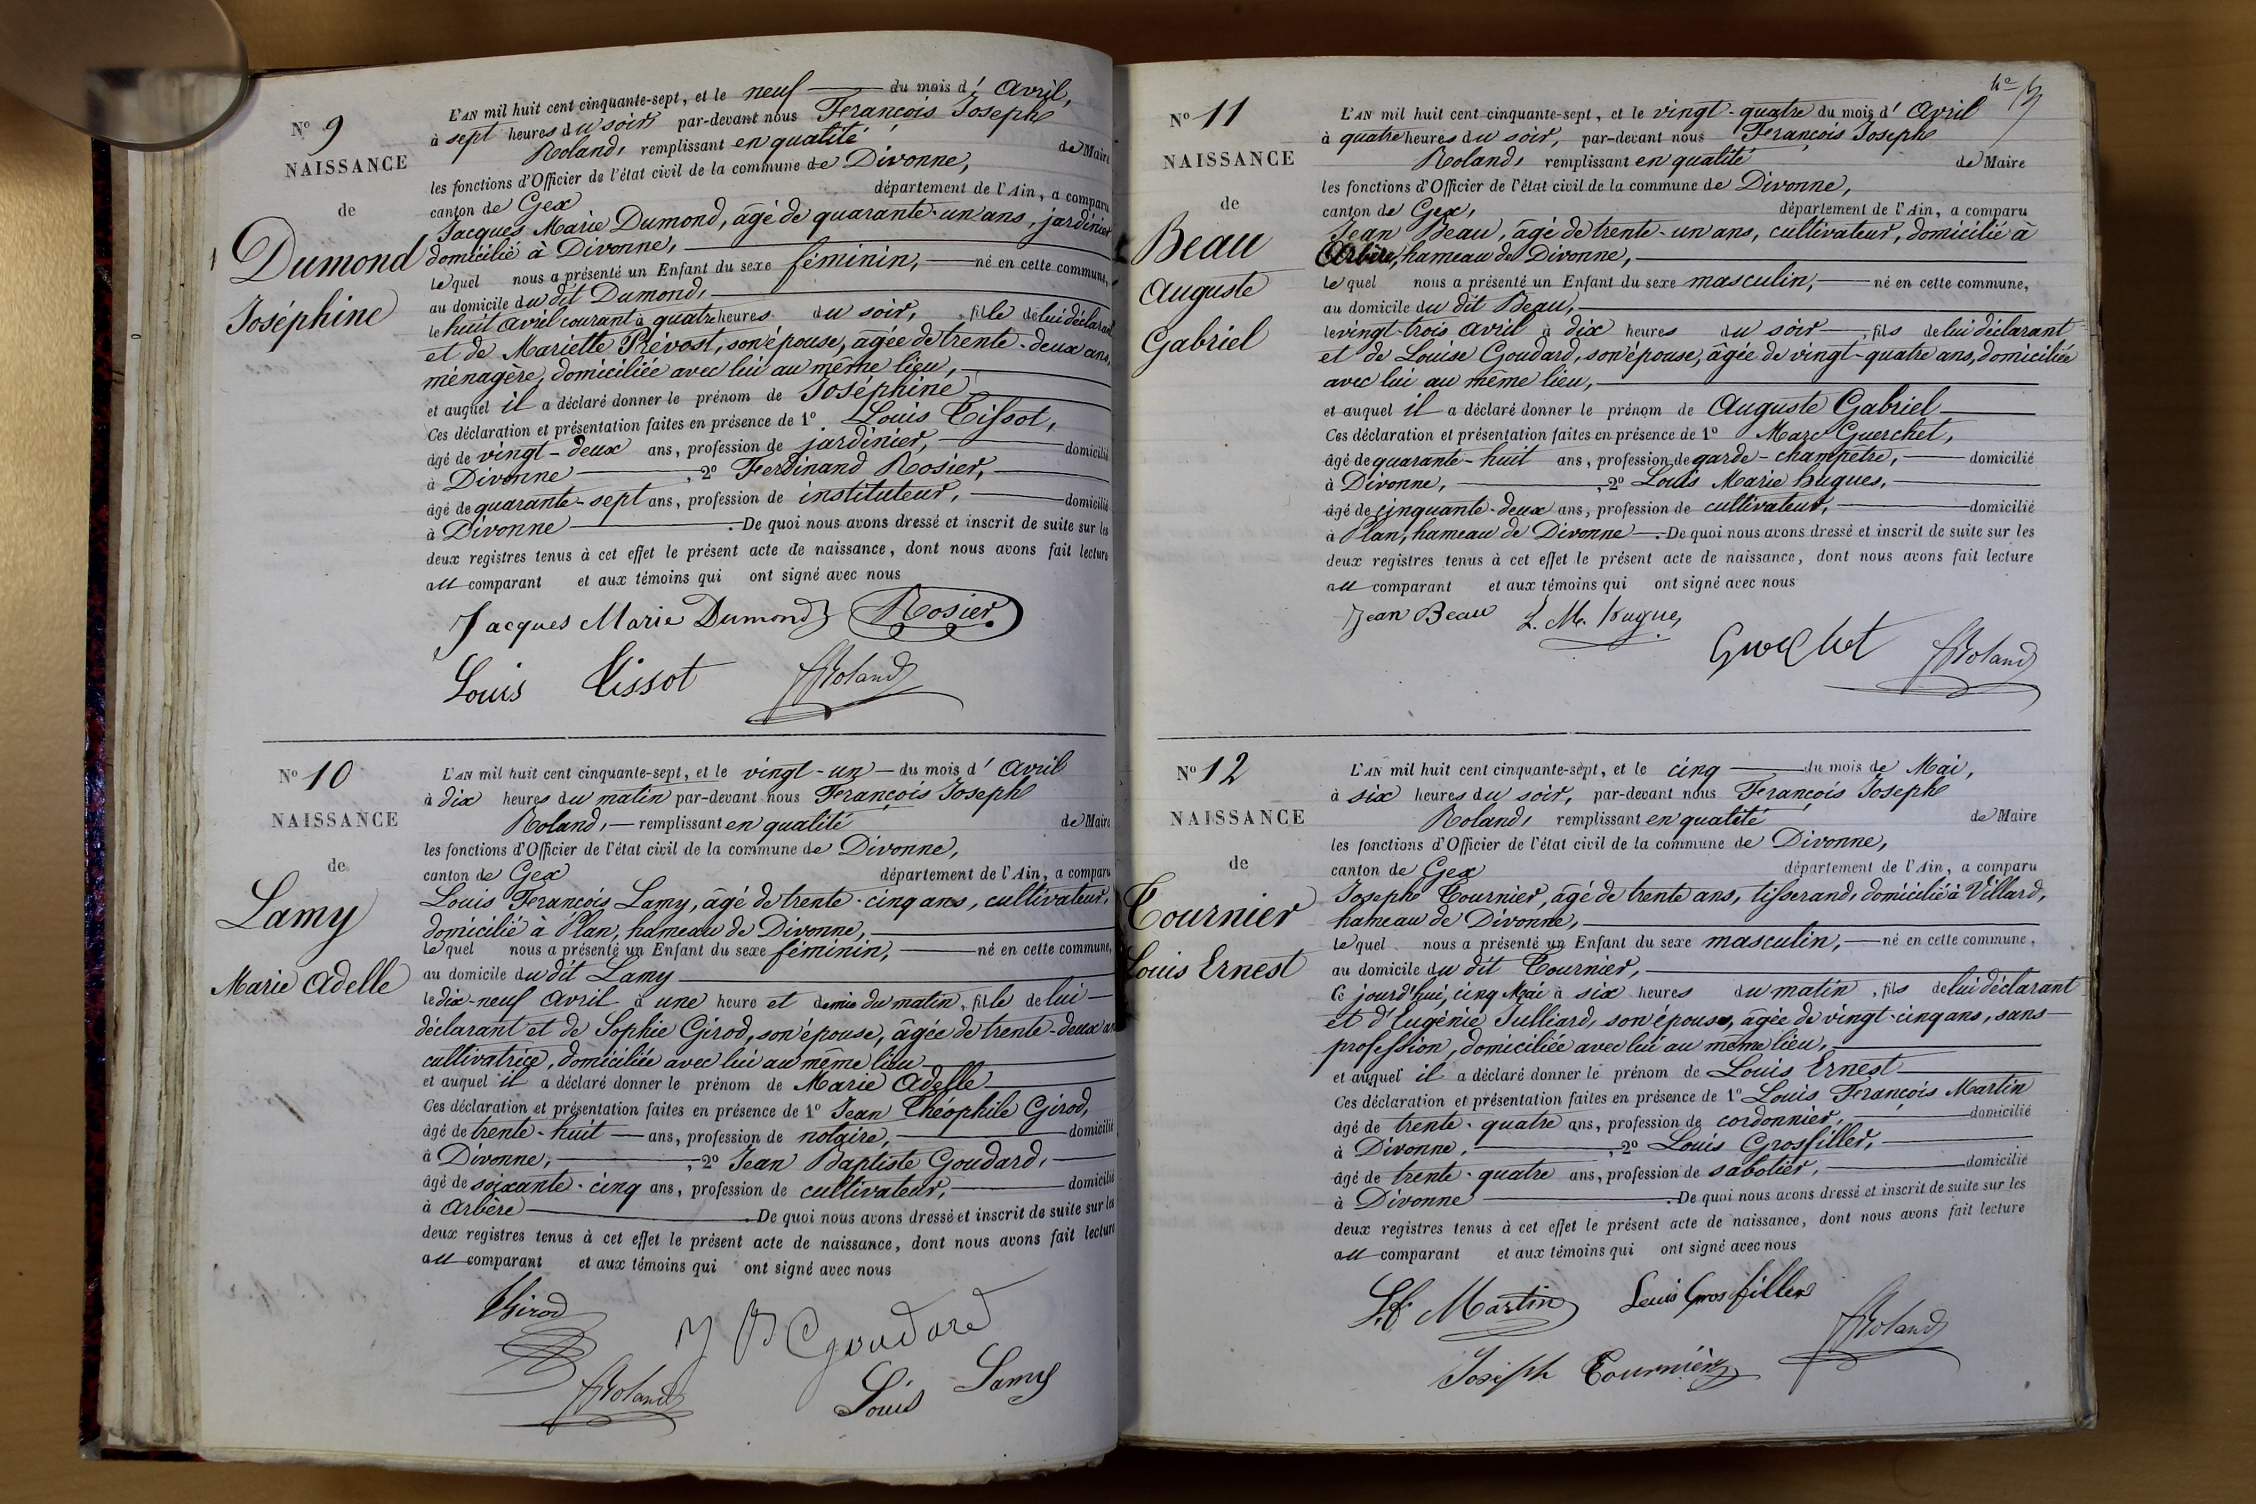 N° 9
NAISSANCE
de
Dumond
Joséphine
L'AN mil huit cent cinquante-sept, et le neuf du mois d' Avril,
à sept heures du soir, par-devant nous François Joseph
Roland, remplissant en qualité de Maire
les fonctions d'Officier de l'état civil de la commune de Divonne,
canton de Gex département de l'Ain, a comparu
Jacques Marie Dumond, âgé de quarante-un ans, jardinier
domicilié à Divonne,
lequel nous a présenté un Enfant du sexe féminin, né en cette commune,
au domicile du dit Dumond,
le huit avril courant à quatre heures du soir, fille de lui déclarant
et de Mariette Prévost, son épouse, âgée de trente-deux ans,
ménagère, domiciliée avec lui au même lieu,
et auquel il a déclaré donner le prénom de Joséphine
Ces déclaration et présentation faites en présence de 1° Louis Tissot,
âgé de vingt-deux ans, profession de jardinier, domicilié
à Divonne, 2° Ferdinand Rosier,
âgé de quarante-sept ans, profession de instituteur, domicilié
à Divonne. De quoi nous avons dressé et inscrit de suite sur les
deux registres tenus à cet effet le présent acte de naissance, dont nous avons fait lecture
au comparant et aux témoins qui ont signé avec nous
Jacques Marie Dumond Rosier
Louis Tissot Roland
N° 10
NAISSANCE
de
Lamy
Marie Adelle
L'AN mil huit cent cinquante-sept, et le vingt-un du mois d' Avril
à dix heures du matin par-devant nous François Joseph
Roland, remplissant en qualité de Maire
les fonctions d'Officier de l'état civil de la commune de Divonne,
canton de Gex département de l'Ain, a comparu
Louis François Lamy, âgé de trente-cinq ans, cultivateur,
domicilié à Plan, hameau de Divonne,
lequel nous a présenté un Enfant du sexe féminin, né en cette commune,
au domicile du dit Lamy
le dix-neuf Avril à une heure et demie du matin, fille de lui
déclarant et de Sophie Girod, son épouse, âgée de trente-deux an
cultivatrice, domiciliée avec lui au même lieu
et auquel il a déclaré donner le prénom de Marie Adelle
Ces déclaration et présentation faites en présence de 1° Jean Théophile Girod,
âgé de trente-huit ans, profession de notaire, domicilié
à Divonne, 2° Jean Baptiste Goudard,
âgé de soixante-cinq ans, profession de cultivateur, domicilié
à Arbère. De quoi nous avons dressé et inscrit de suite sur les
deux registres tenus à cet effet le présent acte de naissance, dont nous avons fait lecture
au comparant et aux témoins qui ont signé avec nous
Girod J B Goudard
Roland Louis Lamy
N° 11
NAISSANCE
de
Beau
Auguste
Gabriel
L'AN mil huit cent cinquante-sept, et le vingt-quatre du mois d' Avril
à quatre heures du soir, par-devant nous François Joseph
Roland, remplissant en qualité de Maire
les fonctions d'Officier de l'état civil de la commune de Divonne,
canton de Gex, département de l'Ain, a comparu
Jean Beau, âgé de trente-un ans, cultivateur, domicilié à
Arbère, hameau de Divonne,
lequel nous a présenté un Enfant du sexe masculin, né en cette commune,
au domicile du dit Beau,
le vingt-trois Avril à dix heures du soir, fils de lui déclarant
et de Louise Goudard, son épouse, âgée de vingt-quatre ans, domiciliée
avec lui au même lieu,
et auquel il a déclaré donner le prénom de Auguste Gabriel
Ces déclaration et présentation faites en présence de 1° Marc Guerchet,
âgé de quarante-huit ans, profession de garde-champetre, domicilié
à Divonne, 2° Louis Marie hugues,
âgé de cinquante-deux ans, profession de cultivateur, domicilié
à Plan, hameau de Divonne. De quoi nous avons dressé et inscrit de suite sur les
deux registres tenus à cet effet le présent acte de naissance, dont nous avons fait lecture
au comparant et aux témoins qui ont signé avec nous
Jean Beau L. M. hugues
Guerchet Roland
N° 12
NAISSANCE
de
Tournier
Louis Ernest
L'AN mil huit cent cinquante-sept, et le cinq du mois de Mai,
à six heures du soir, par-devant nous François Joseph
Roland, remplissant en qualité de Maire
les fonctions d'Officier de l'état civil de la commune de Divonne,
canton de Gex département de l'Ain, a comparu
Joseph Tournier, âgé de trente ans, tisserand, domicilié à Villard,
hameau de Divonne,
lequel nous a présenté un Enfant du sexe masculin, né en cette commune,
au domicile du dit Tournier,
Ce jourd'hui, cinq Mai à six heures du matin, fils de lui déclarant
et d'Eugénie Julliard, son épouse, âgée de vingt-cinq ans, sans
profession, domiciliée avec lui au même lieu,
et auquel il a déclaré donner le prénom de Louis Ernest
Ces déclaration et présentation faites en présence de 1° Louis François Martin
âgé de trente-quatre ans, profession de cordonnier, domicilié
à Divonne, 2° Louis Grosfiller,
âgé de trente-quatre ans, profession de sabotier, domicilié
à Divonne. De quoi nous avons dressé et inscrit de suite sur les
deux registres tenus à cet effet le présent acte de naissance, dont nous avons fait lecture
au comparant et aux témoins qui ont signé avec nous
L.f. Martin Louis Grosfiller
Joseph Tournier Roland